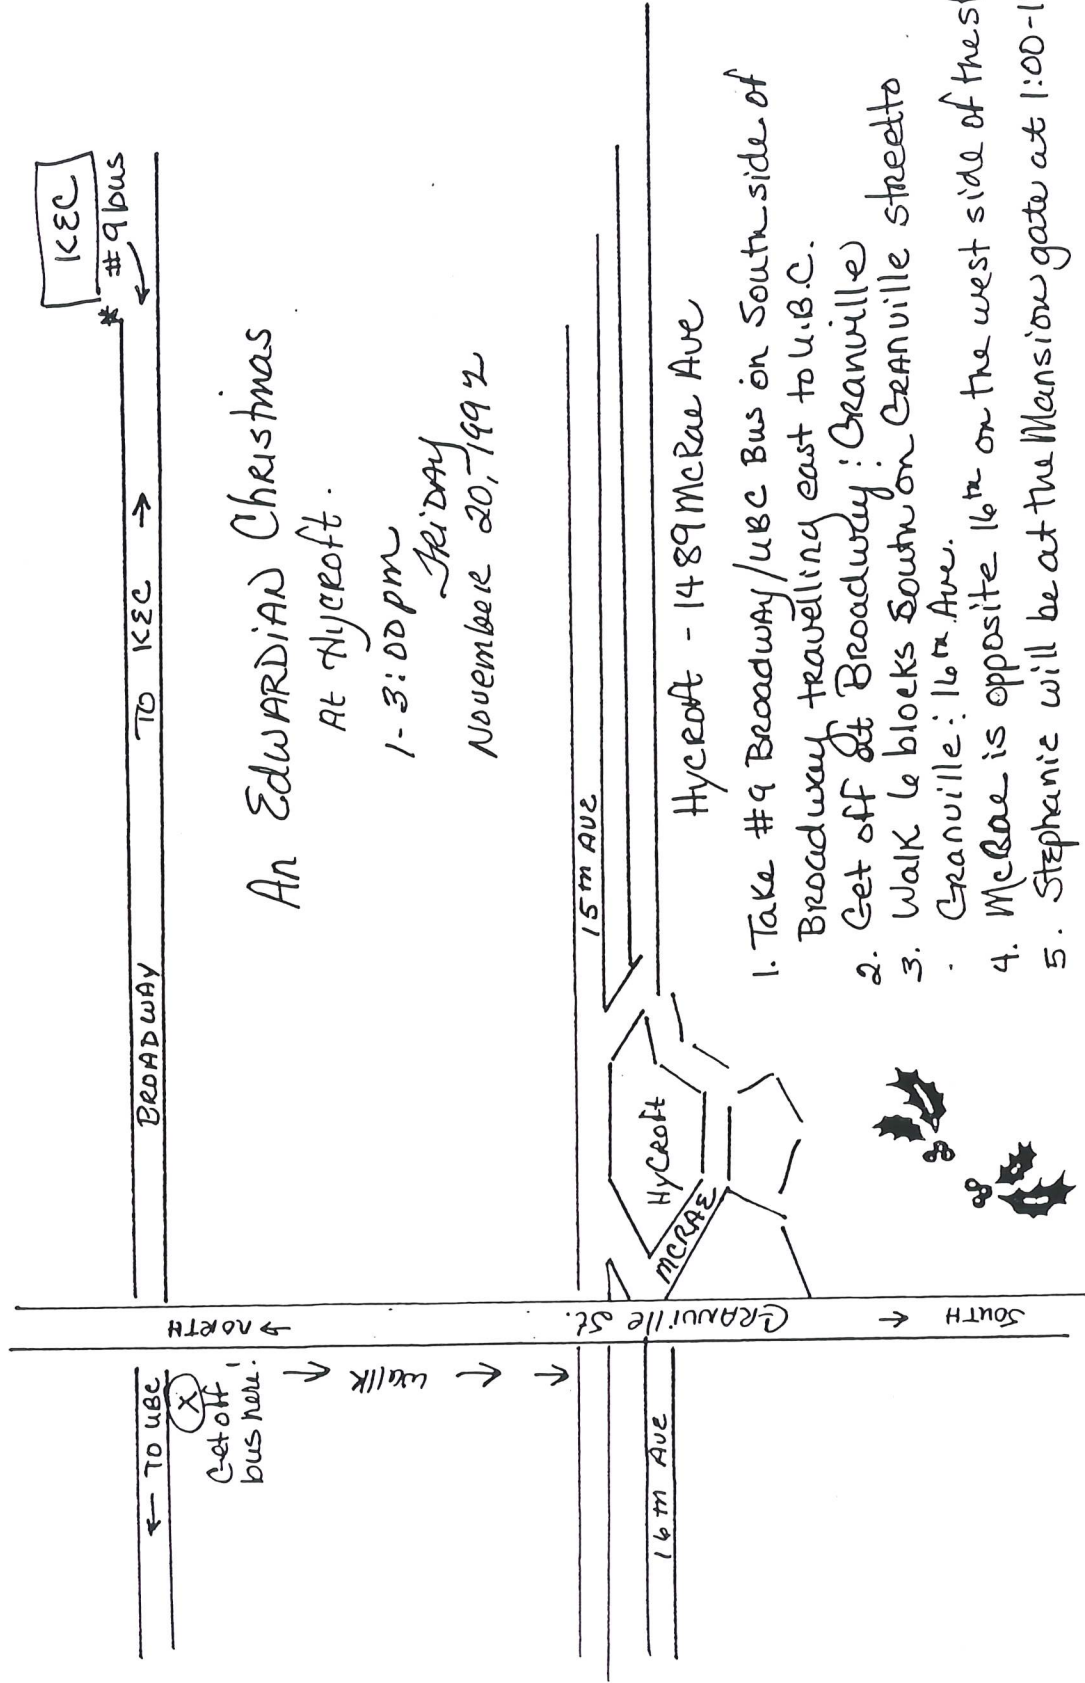 KEC
#9 bus
*
TO KEC →
BROADWAY
← TO UBC
X
Get off
bus here!
→ NORTH
← Walk ← ←
An EDWARDIAN Christmas
At Hycroft.
1-3:00 pm
FRIDAY
November 20, 1992
15th AVE
GRANVILLE St.
HYCROFT
MCRAE
16th AVE
SOUTH ←
Hycroft - 1489 McRae Ave
1. Take #9 Broadway/UBC Bus on South side of
Broadway travelling east to U.B.C.
2. Get off at Broadway : Granville
3. Walk 6 blocks South on Granville street to
Granville : 16th Ave.
4. McRae is opposite 16th on the west side of the
5. Stephanie will be at the Mansion gate at 1:00-1